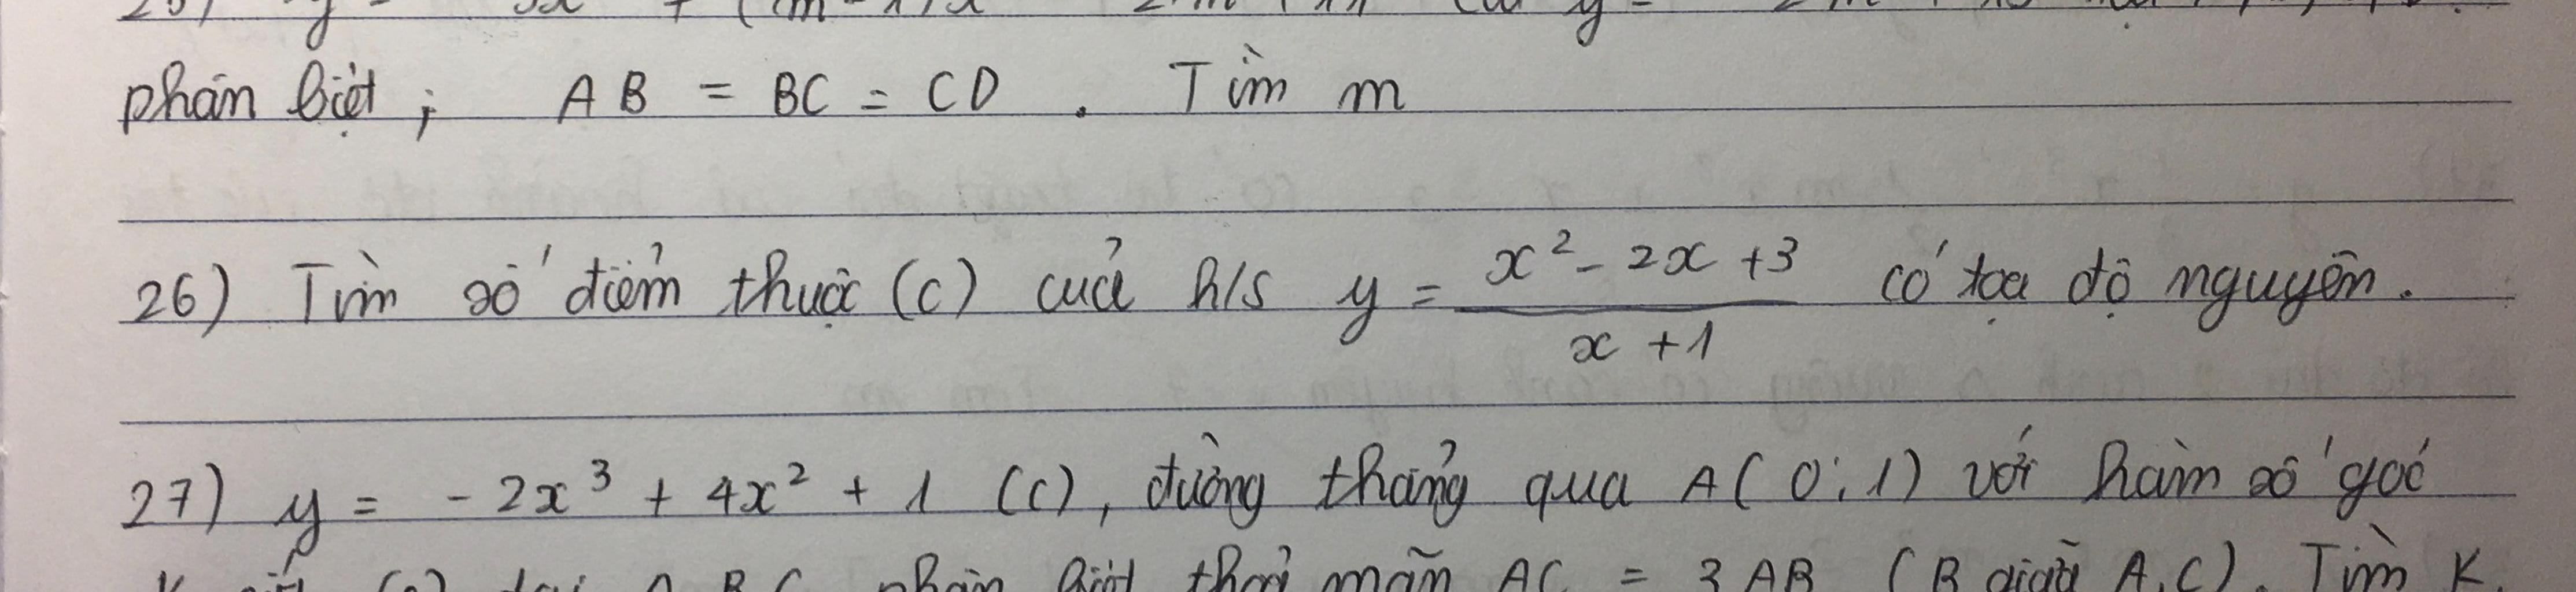 phân biệt ; AB = BC = CD . Tìm m
26) Tìm số điểm thuộc (C) của h/s y = \frac{x² - 2x + 3}{x + 1} có tọa độ nguyên.
27) y = - 2x³ + 4x² + 1 (C), đường thẳng qua A( 0; 1) với hàm số góc
(C) tại A, B, C phân biệt thoả mãn AC = 3 AB (B giữa A, C). Tìm K.